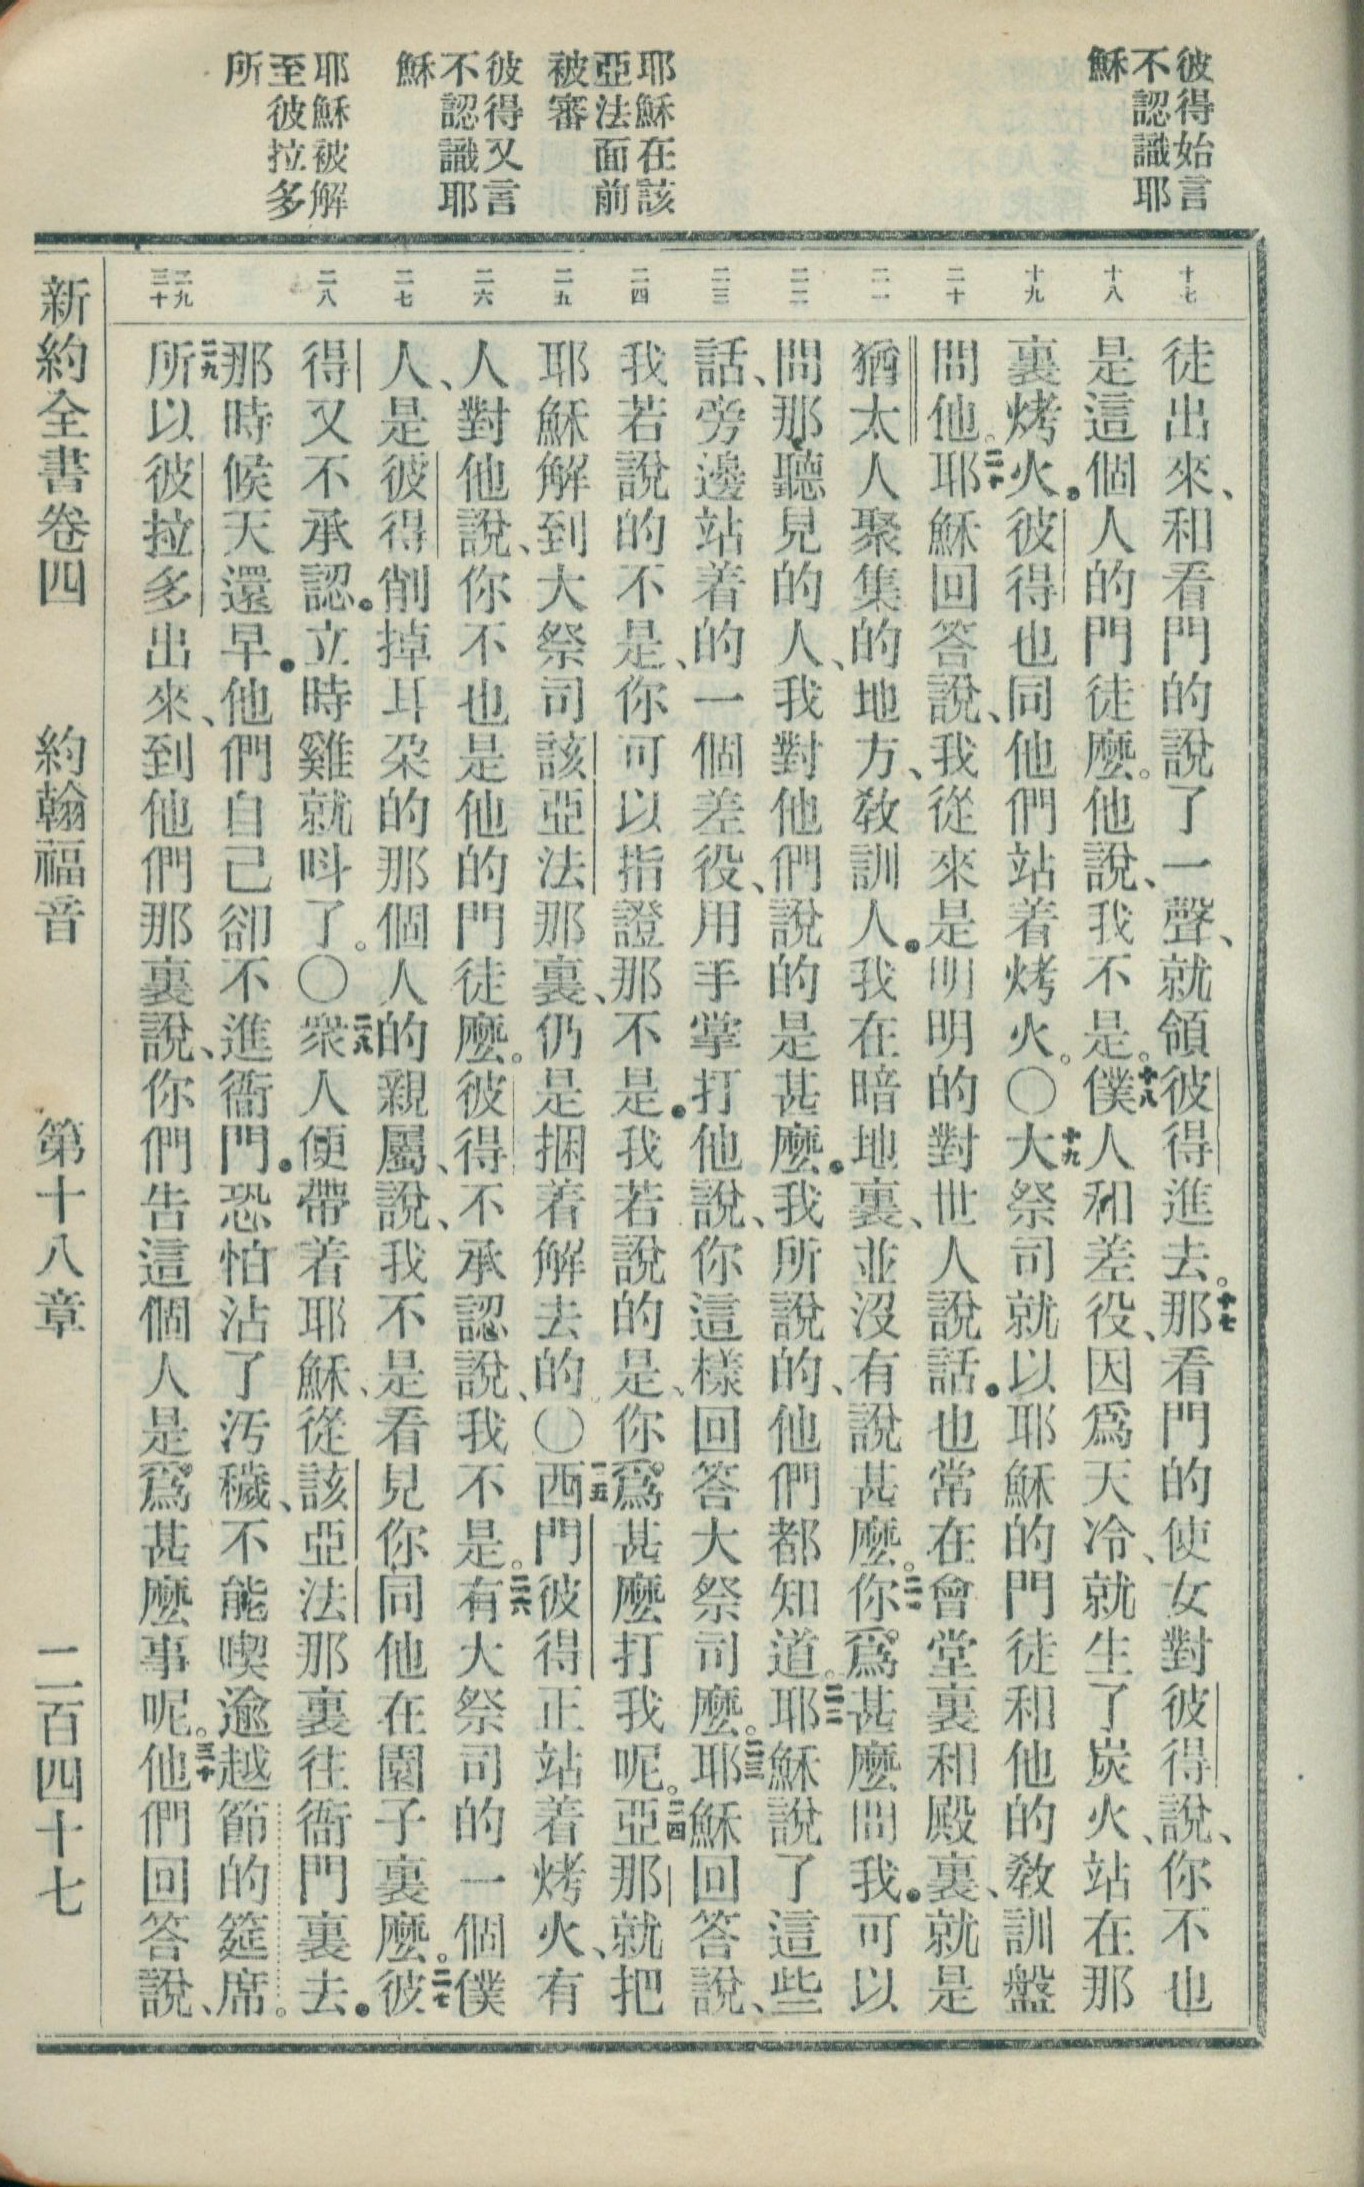 彼得始言
不認識耶
穌
耶穌在該
亞法面前
被審
彼得又言
不認識耶
穌
耶穌被解
至彼拉多
所
十七
十八
十九
二十
二一
二二
二三
二四
二五
二六
二七
二八
二九
三十
徒出來、和看門的說了一聲、就領彼得進去。十七那看門的使女對彼得說、你不也
是這個人的門徒麼。他說、我不是。十八僕人和差役、因爲天冷、就生了炭火、站在那
裏烤火．彼得也同他們站着烤火。〇十九大祭司就以耶穌的門徒和他的教訓盤
問他。二十耶穌回答說、我從來是明明的對世人說話．也常在會堂裏和殿裏、就是
猶太人聚集的地方、教訓人．我在暗地裏、並沒有說甚麼。二一你爲甚麼問我．可以
問那聽見的人、我對他們說的是甚麼．我所說的、他們都知道。二二耶穌說了這些
話、旁邊站着的一個差役、用手掌打他說、你這樣回答大祭司麼。二三耶穌回答說、
我若說的不是、你可以指證那不是．我若說的是、你爲甚麼打我呢。二四亞那就把
耶穌解到大祭司該亞法那裏、仍是捆着解去的。〇二五西門彼得正站着烤火、有
人對他說、你不也是他的門徒麼。彼得不承認說、我不是。二六有大祭司的一個僕
人、是彼得削掉耳朶的那個人的親屬、說、我不是看見你同他在園子裏麼。二七彼
得又不承認．立時雞就呌了。〇二八衆人便帶着耶穌、從該亞法那裏往衙門裏去．
那時候天還早．他們自己卻不進衙門．恐怕沾了汚穢、不能喫逾越節的筵席。
二九所以彼拉多出來、到他們那裏說、你們告這個人是爲甚麼事呢。三十他們回答說、
新約全書卷四　約翰福音　第十八章　二百四十七